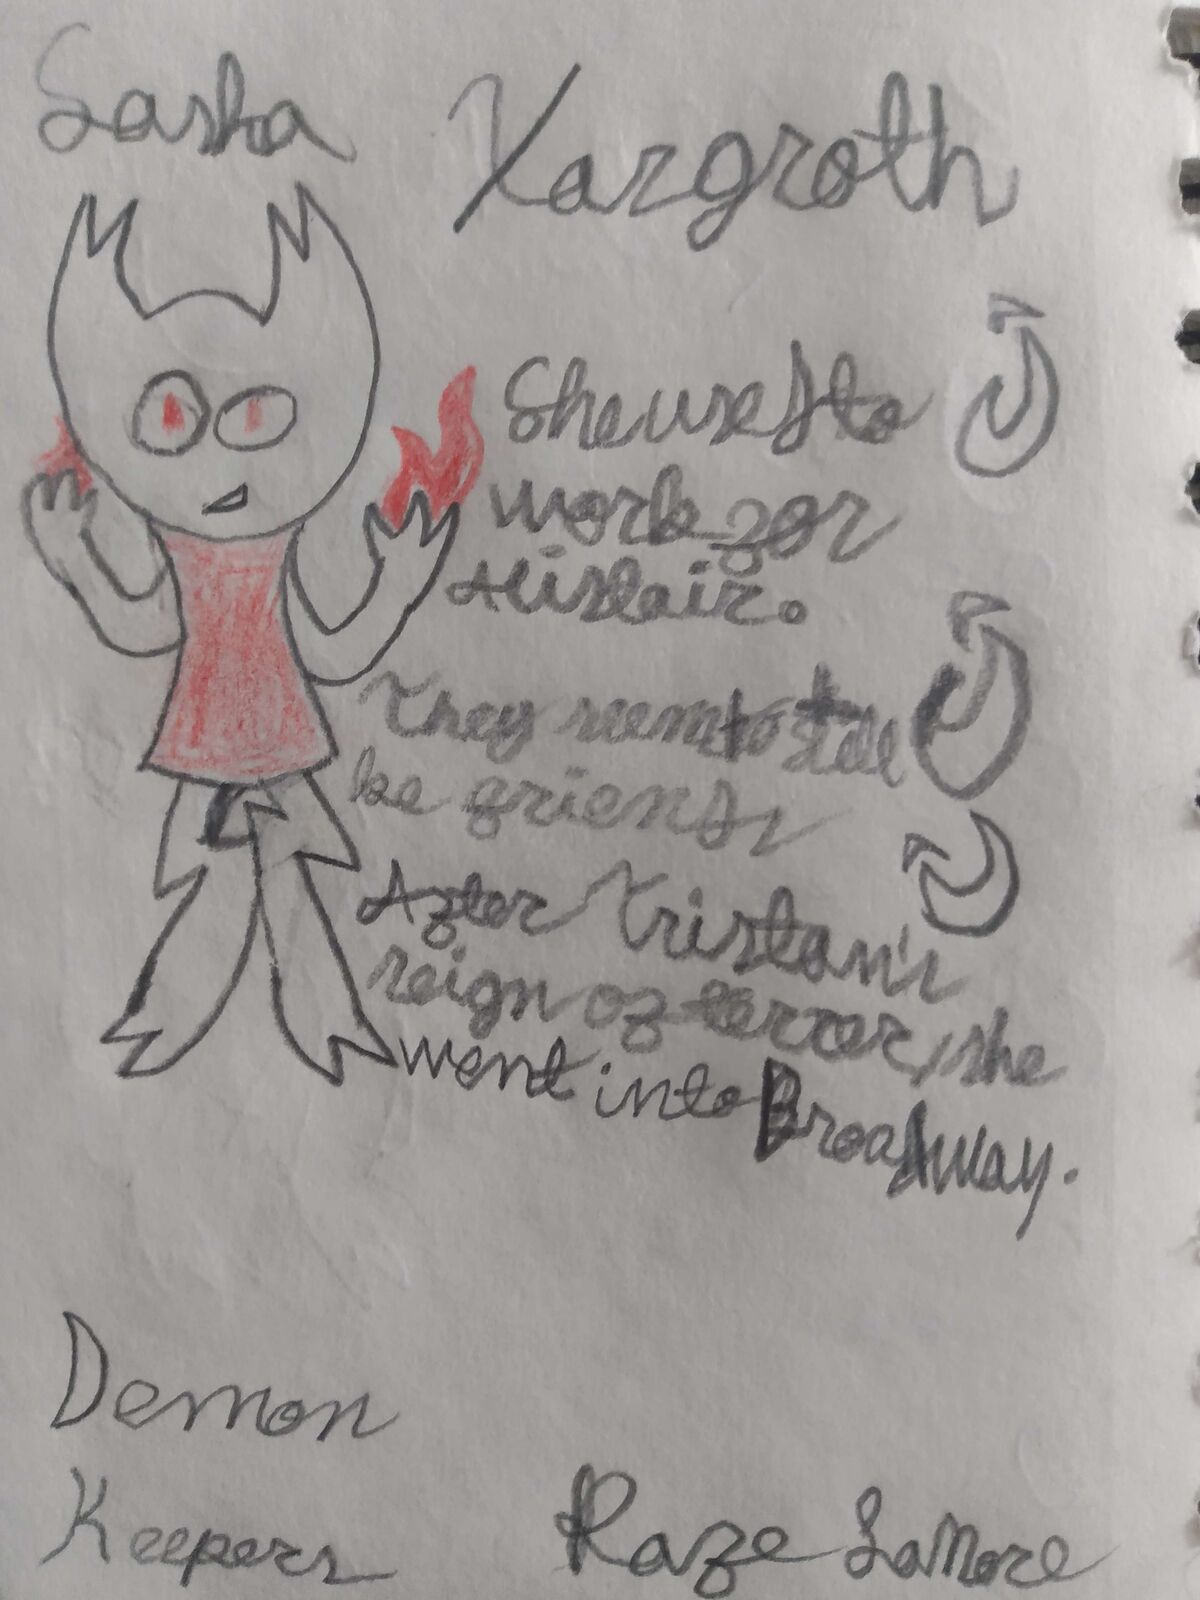 Sasha Xargroth
She used to
work for
Alistair.
They seem to still
be friends
After Tristan's
reign of terror, she
went into Broadway.
Demon
Keepers
Raze LaMore